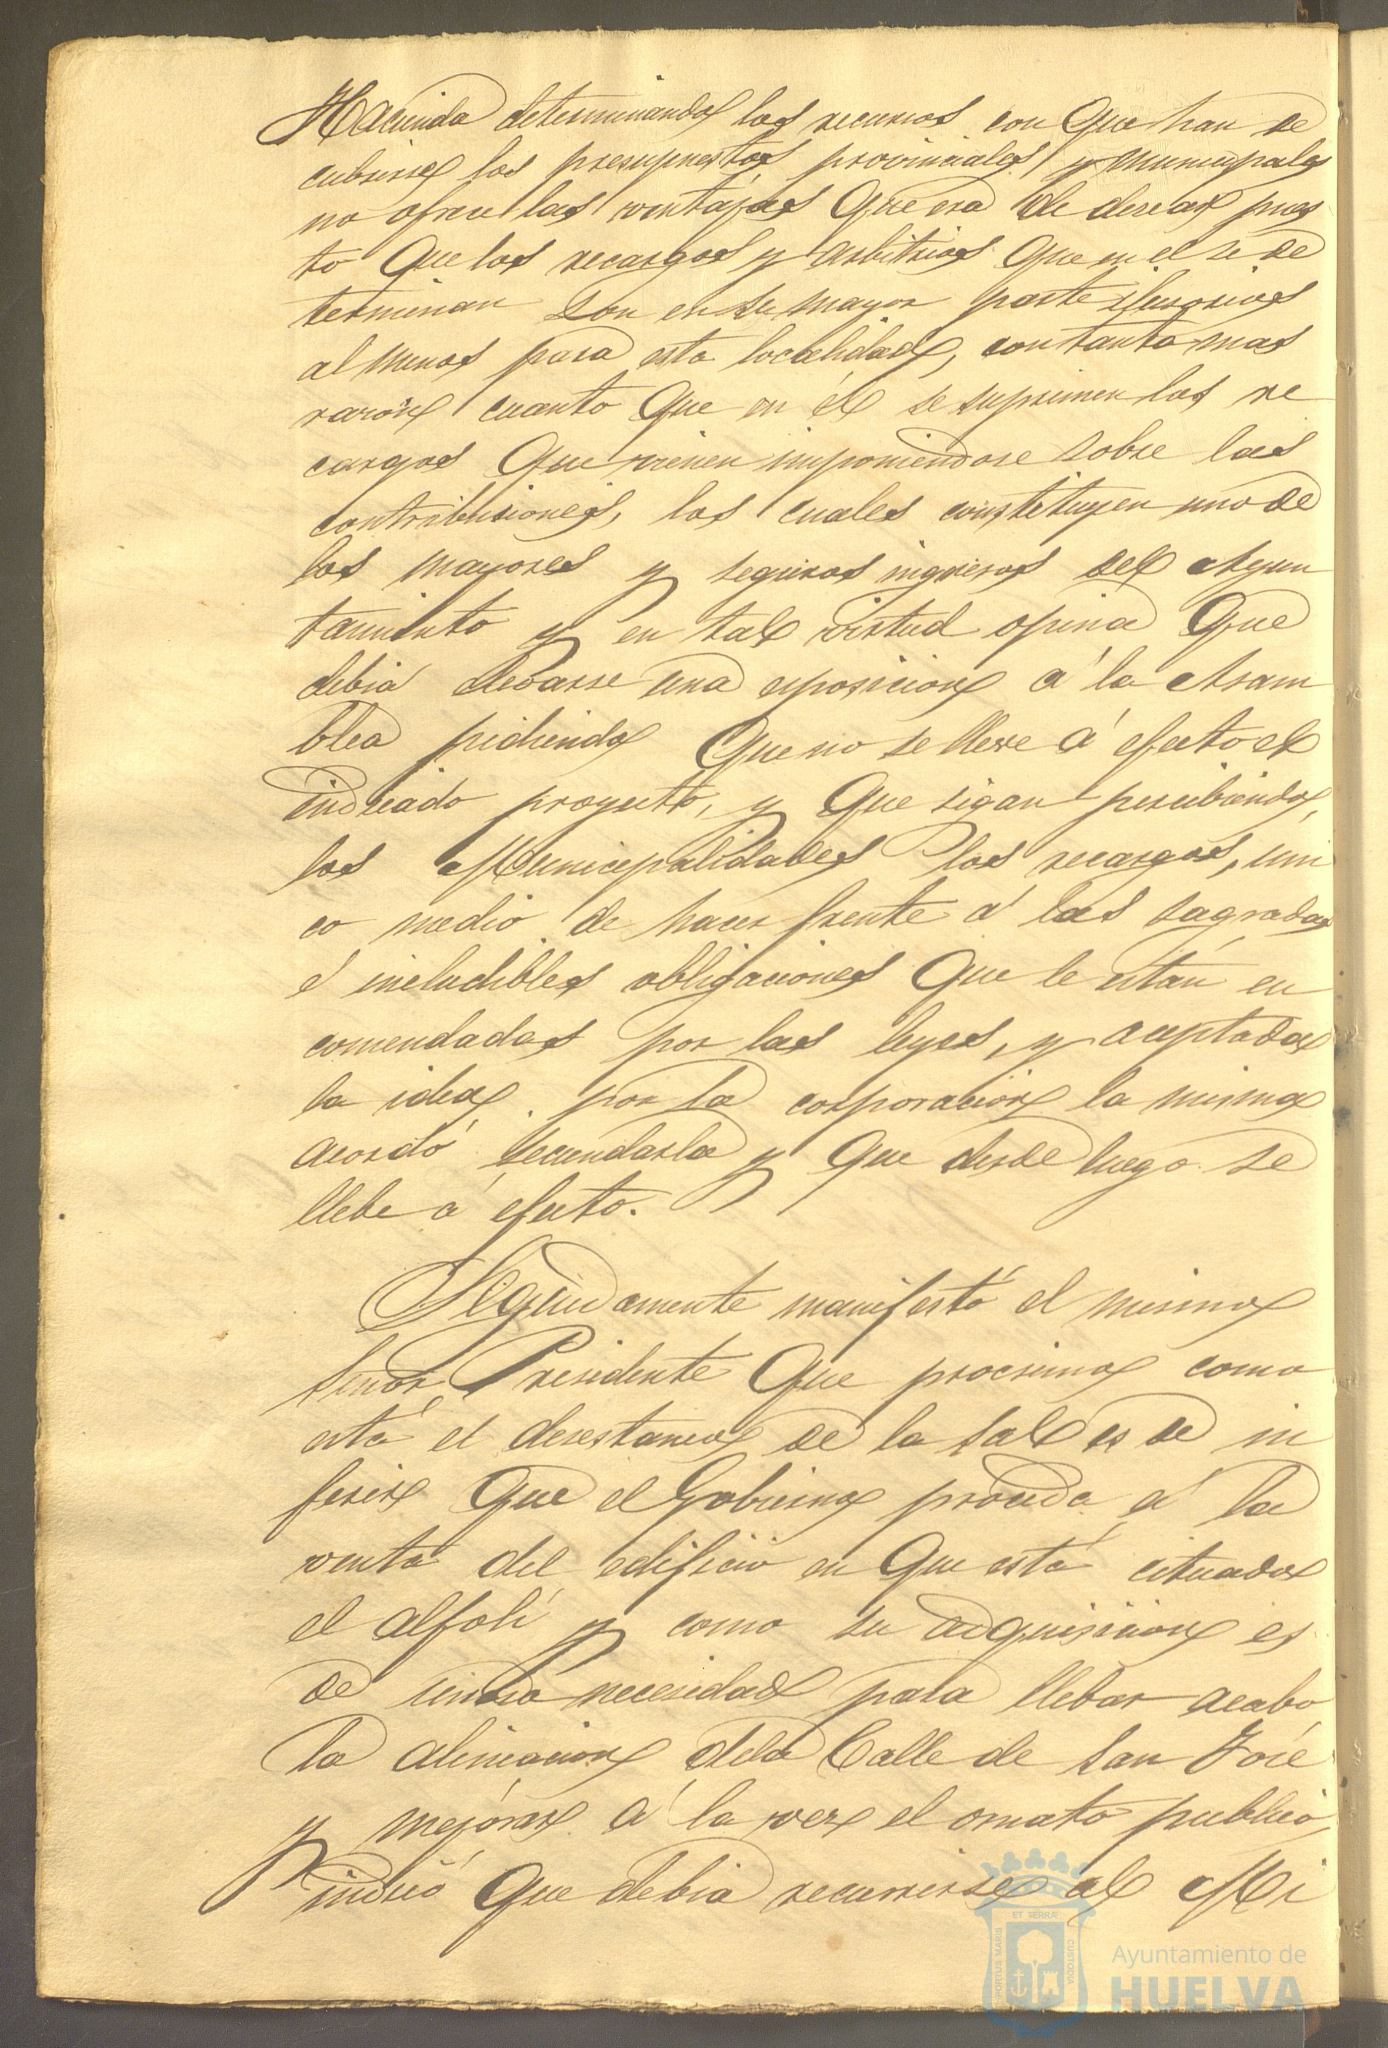 Hacienda determinando los recursos con que han de
cubrirse los presupuestos provinciales y municipales
no ofrece las ventajas que era de desear pues
to que los recargos y arbitrios que en el se de
terminan son en su mayor parte ilusorios
al menos para esta localidad, con tanta mas
razon cuanto que en él se suprimen los re
cargos que vienen imponiendose sobre las
contribuciones, los cuales constituyen uno de
los mayores y seguros ingresos del Ayun
tamiento y en tal virtud opina que
debia elevarse una esposicion á la Asam
blea pidiendo que no se lleve á efecto el
indicado proyecto, y que sigan percibiendo,
los Municipalidades los recargos, uni
co medio de hacer frente á las sagradas
é ineludibles obligaciones que le están en
comendadas por las leyes, y aceptada
la idea por la corporacion la misma
acordó secundarla y que desde luego se
llebe á efecto.
Seguidamente manifestó el mismo
Señor Presidente que procsimo como
está el desestanco de la sal es de in
ferir que el Gobierno proceda á la
venta del edificio en que está cituado
el alfolí y como su adquisicion es
de suma necesidad para llebar acabo
la alineacion dela Calle de San José
y mejorar á la vez el ornato publico,
indicó que debia recurrirse al Mi
PORTUS MARIS
ET TERRÆ
CUSTODIA
Ayuntamiento de
HUELVA